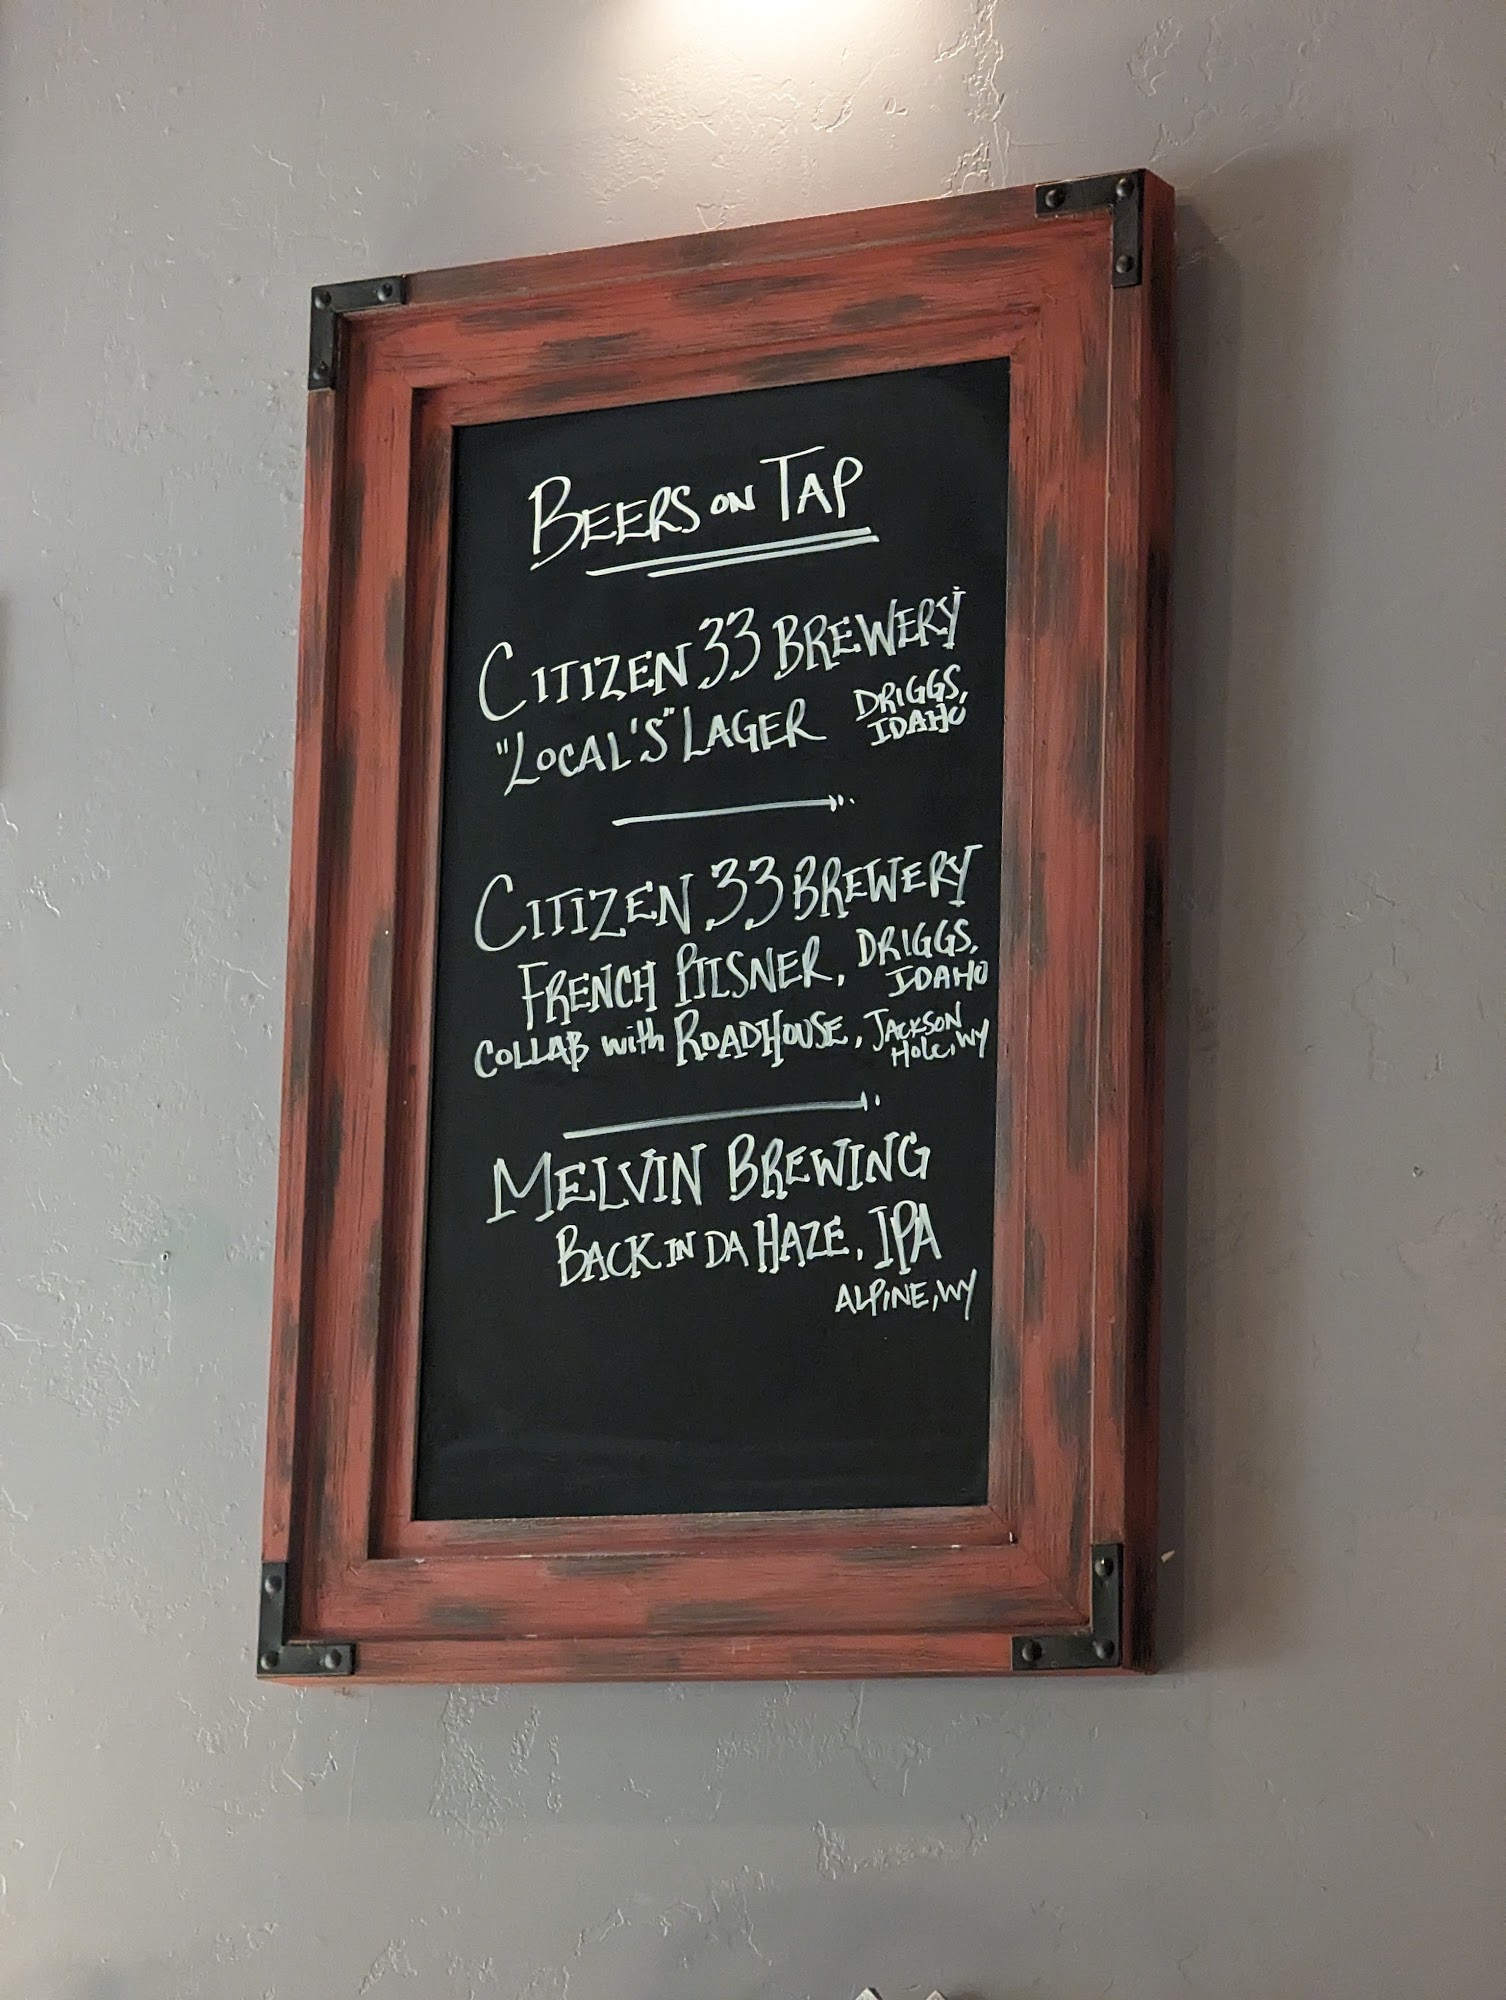 BEERS ON TAP
CITIZEN 33 BREWERY
"LOCAL'S" LAGER DRIGGS,
IDAHO
CITIZEN 33 BREWERY
FRENCH PILSNER, DRIGGS,
IDAHO
COLLAB with ROADHOUSE, JACKSON
Hole, WY
MELVIN BREWING
BACK IN DA HAZE, IPA
ALPINE, WY